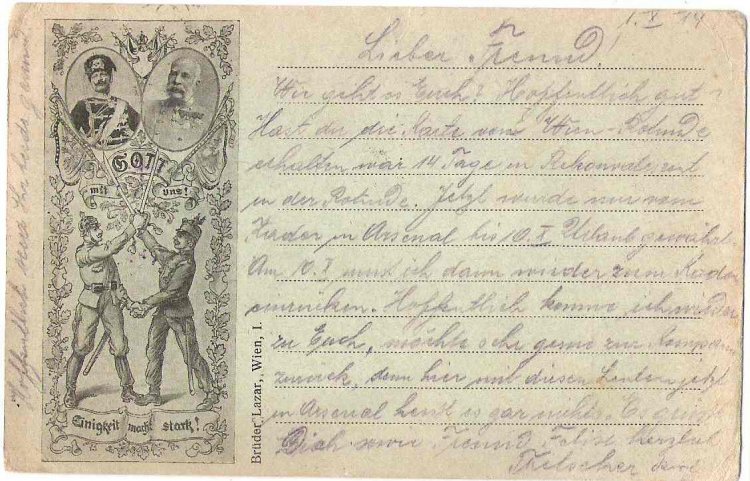 1. X 14
Lieber Freund!
Wie geht es Euch? Hoffentlich gut?
Hast du die Karte vom Wien-Rotunde
erhalten war 14 Tage in Rekonvaleszent
in der Rotunde. Jetzt wurde mir vom
Kader in Arsenal bis 10. X Urlaub gewährt.
Am 10. X muss ich dann wieder zum Kader
einrücken. Hoffentlich komme ich wieder
zu Euch, möchte sehr gerne zur Komp
zurück, denn hier mit diesen jetzt
in Arsenal heist es gar nichts. Es grüßt
Dich Freund herzlich
Hoffentlich seid Ihr beide gesund
GOTT
mit uns!
Einigkeit macht stark!
Brüder Lazar, Wien, I.